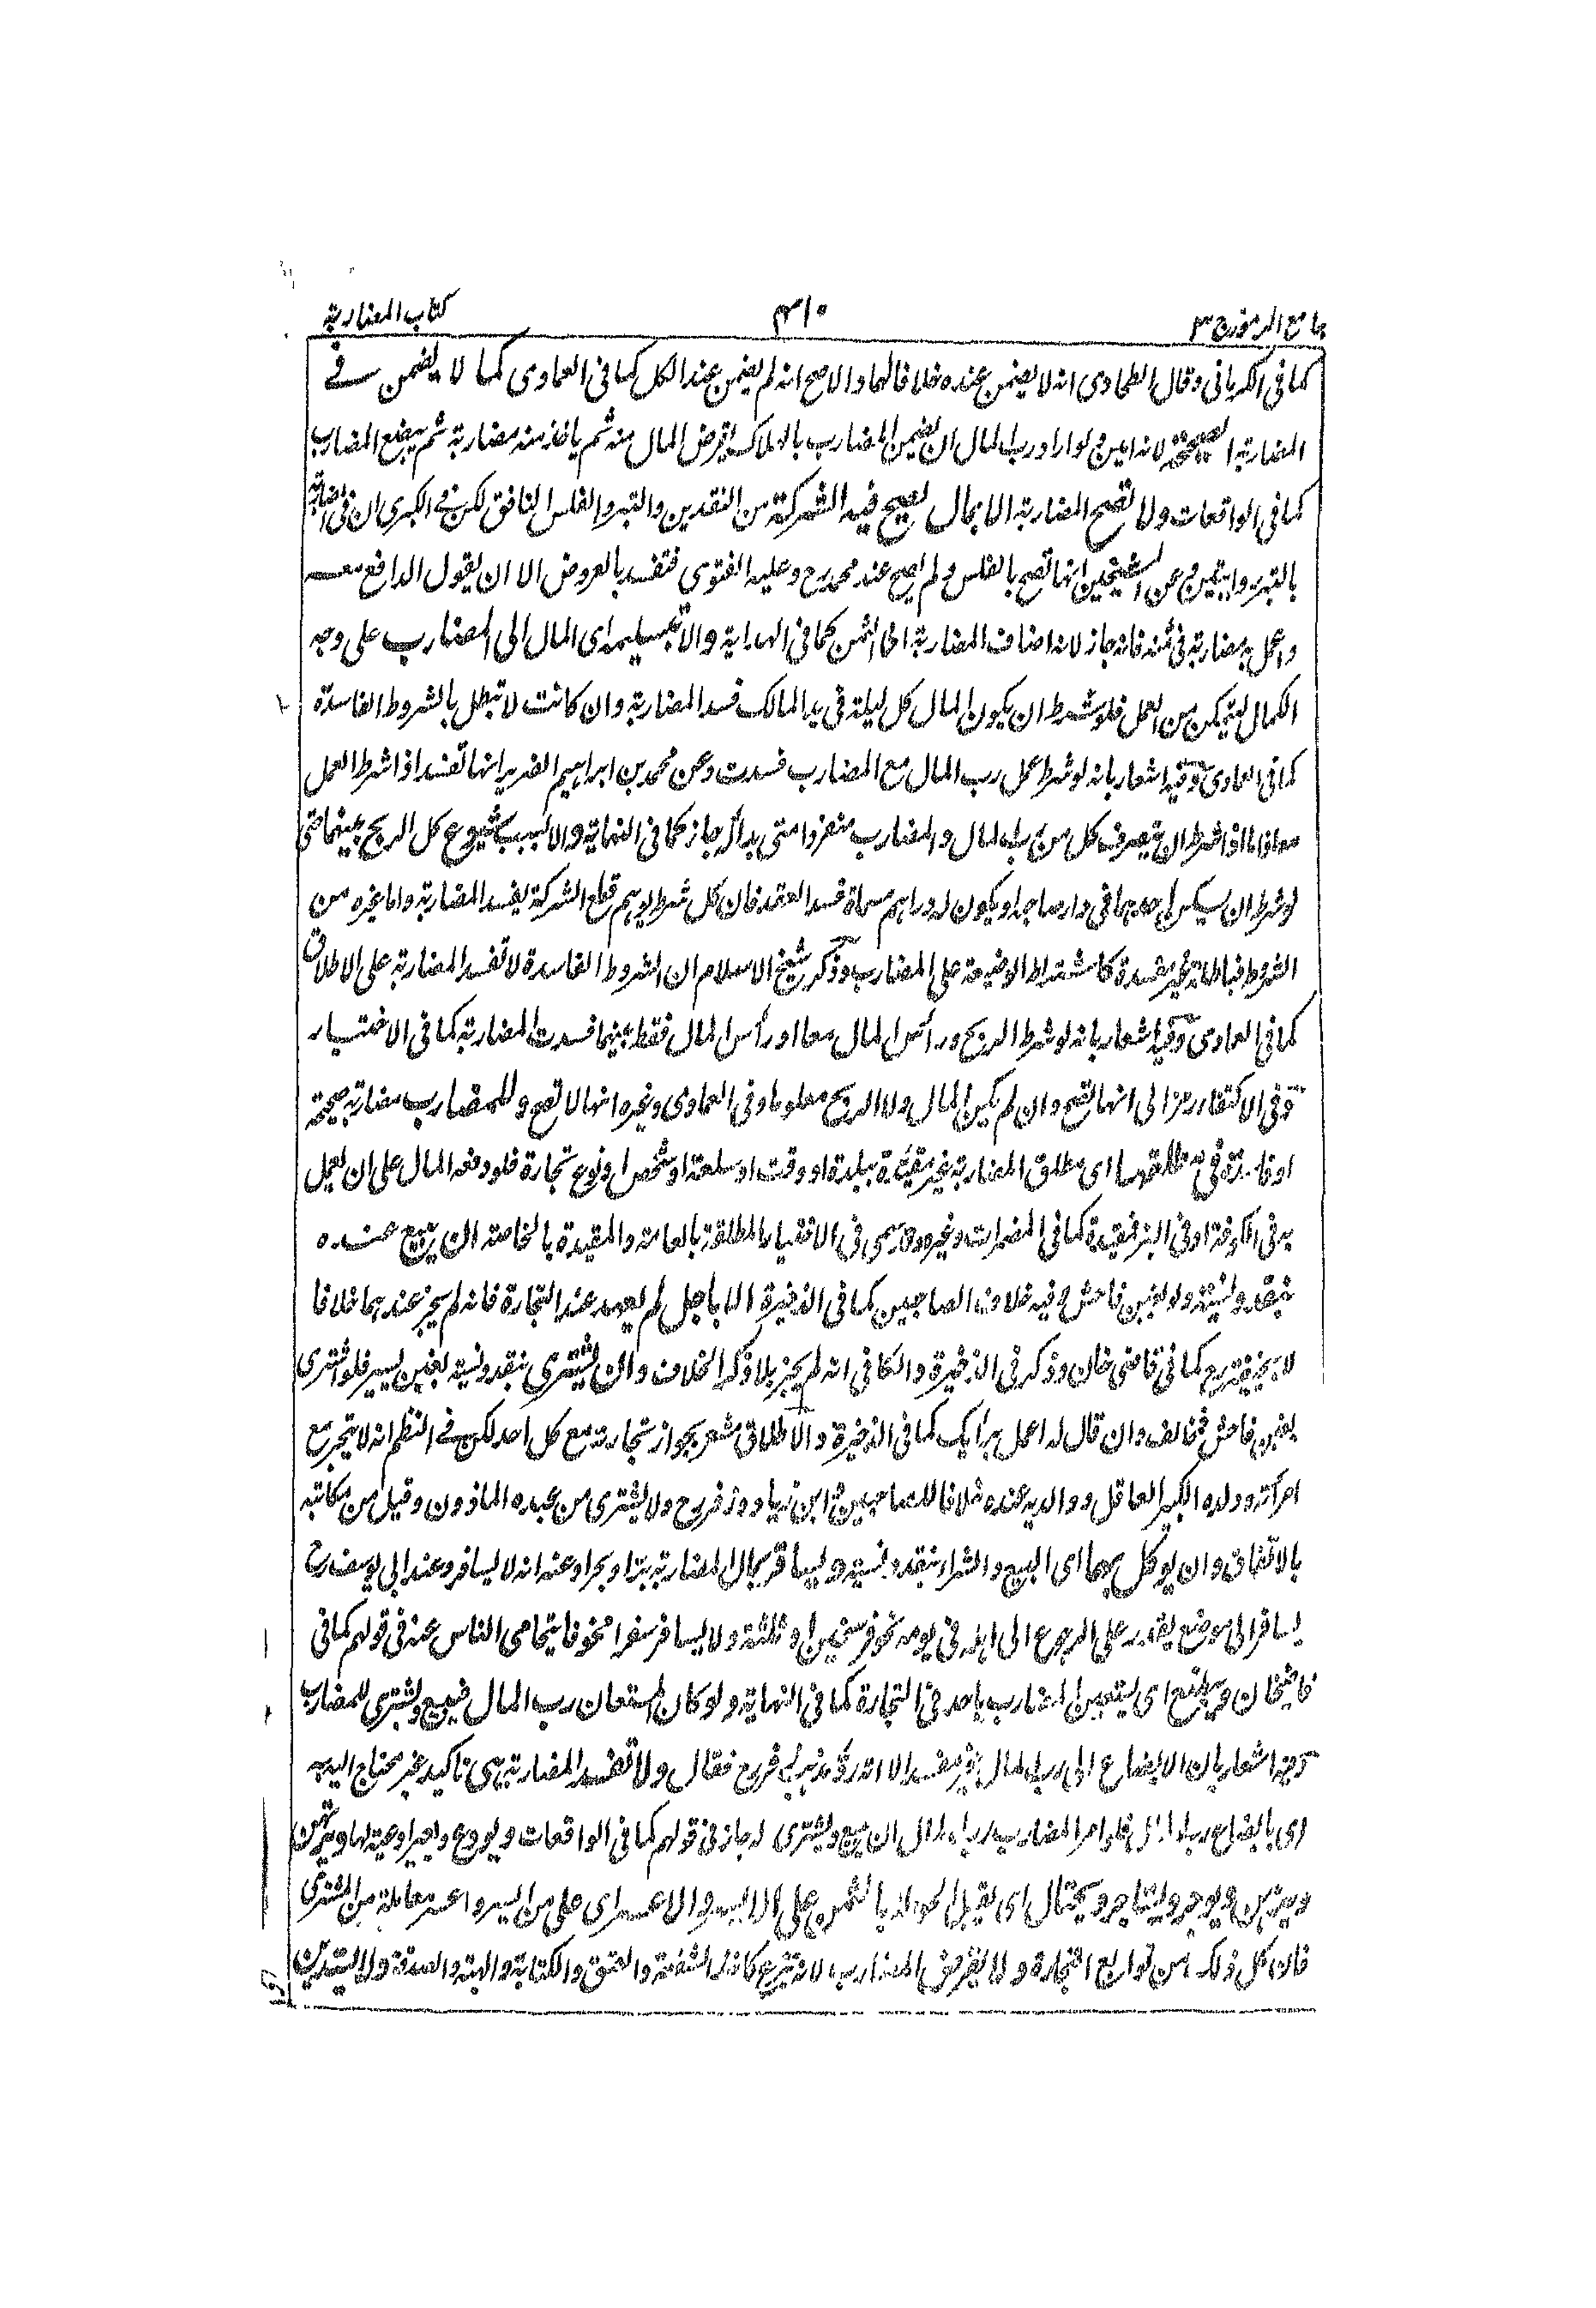 جامع الرموز ج ٣
٣١٠
كتاب المضاربة
كما فى الكرمانى وقال الطحاوى انه لا يضمن عنده خلافا لهما والاصح انه لم يضمن عند الكل كما فى العمادى كما لا يضمن فى
المضاربة الصحيحة لانه امين ولو اراد رب المال ان يضمن المضارب بالهلاك يقرض المال منه ثم ياخذ منه مضاربة ثم يبضع المضارب
كما فى الواقعات ولا تصح المضاربة الا بمال يصح فيه الشركة من النقدين والتبر والفلس النافق لكن فى الكبرى ان فى المضاربة
بالتبر روايتين وعن الشيخين انها تصح بالفلس ولم يصح عند محمد رح وعليه الفتوى فتفسد بالعروض الا ان يقول الدافع بعه
واعمل به مضاربة فى ثمنه فانه جاز لانه اضاف المضاربة الى الثمن كما فى الهداية والا بتسليمه اى المال الى المضارب على وجه
الكمال ليتمكن من العمل فلو شرط ان يكون المال كل ليلة فى يد المالك فسد المضاربة وان كانت لا تبطل بالشروط الفاسدة
كما فى العمادى وفيه اشعار بانه لو شرط عمل رب المال مع المضارب فسدت وعن محمد بن ابراهيم الضرير انها تفسد اذا شرط العمل
معا واما اذا شرط ان يتصرف كل من رب المال والمضارب منفردا متى بدا له جاز كما فى النهاية والا بسبب شيوع كل الربح بينهما حتى
لو شرط ان يسكن احدهما فى دار صاحبه او يكون له دراهم مسماة فسد العقد فان كل شرط يوهم قطع الشركة يفسد المضاربة واما غيره من
الشروط فباطلة غير مفسدة كاشتراط الوضيعة على المضارب وذكر شيخ الاسلام ان الشروط الفاسدة لا تفسد المضاربة على الاطلاق
كما فى العمادى وفيه اشعار بانه لو شرط الربح وراس المال معا او راس المال فقط بينهما فسدت المضاربة كما فى الاختيار
وفى الاكتفاء رمز الى انها تصح وان لم يكن المال ولا الربح معلوما وفى العمادى وغيره انها لا تصح وللمضارب مضاربة صحيحة
او فاسدة فى مطلقها اى مطلق المضاربة غير مقيدة ببلدة او وقت او سلعة او شخص او نوع تجارة فلو دفعه المال على ان يعمل
به فى الكوفة او فى البز فمقيدة كما فى المضمرات وغيره وقد سمى فى الاختيار المطلقة بالعامة والمقيدة بالخاصة ان يبيع عنده
بنقد ونسية ولو بغبن فاحش وفيه خلاف الصاحبين كما فى الذخيرة الا باجل لم يعهد عند التجارة فانه لم يجز عندهما خلافا
لابى حنيفة رح كما فى قاضى خان وذكر فى الذخيرة والكافى انه لم يجز بلا ذكر الخلاف وان يشترى بنقد ونسية بغبن يسير فلو اشترى
بغبن فاحش فمخالف وان قال له اعمل برأيك كما فى الذخيرة والاطلاق مشعر بجواز تجارته مع كل احد لكن فى النظم انه لا يتجر مع
امرأته وولده الكبير العاقل ووالديه عنده خلافا للصاحبين وابن زياد وزفر رح ولا يشترى من عبده الماذون وقيل من مكاتبه
بالاتفاق وان يوكل بهما اى البيع والشراء بنقد ونسية ويسافر بمال المضاربة برا وبحرا وعنه انه لا يسافر وعند ابى يوسف رح
يسافر الى موضع يقدر على الرجوع الى اهله فى يومه نحو فرسخين او ثلثة ولا يسافر سفرا مخوفا يتحامى الناس عنه فى قولهم كما فى
قاضيخان ويبضع اى يستعين المضارب باحد فى التجارة كما فى النهاية ولو كان المستعان رب المال فيبيع ويشترى للمضارب
وفيه اشعار بان الابضاع الى رب المال غير مفسد الا انه رد مذهب زفر رح فقال ولا تفسد المضاربة هى تاكيد غير محتاج اليه به
اى بابضاع رب المال فلو امر المضارب رب المال ان يبيع ويشترى له جاز فى قولهم كما فى الواقعات ويودع ويعير اوعية لها ويرتهن
ويرهن ويوجر ويستاجر ويحتال اى يقبل الحوالة بالثمن على الايسر والاعسر اى على من ايسر واعسر معاملة من المشترى
فان كل ذلك من توابع التجارة ولا يقرض المضارب لانه تبرع كاخذ الشفعة والعتق والكتابة والهبة والصدقة ولا يستدين